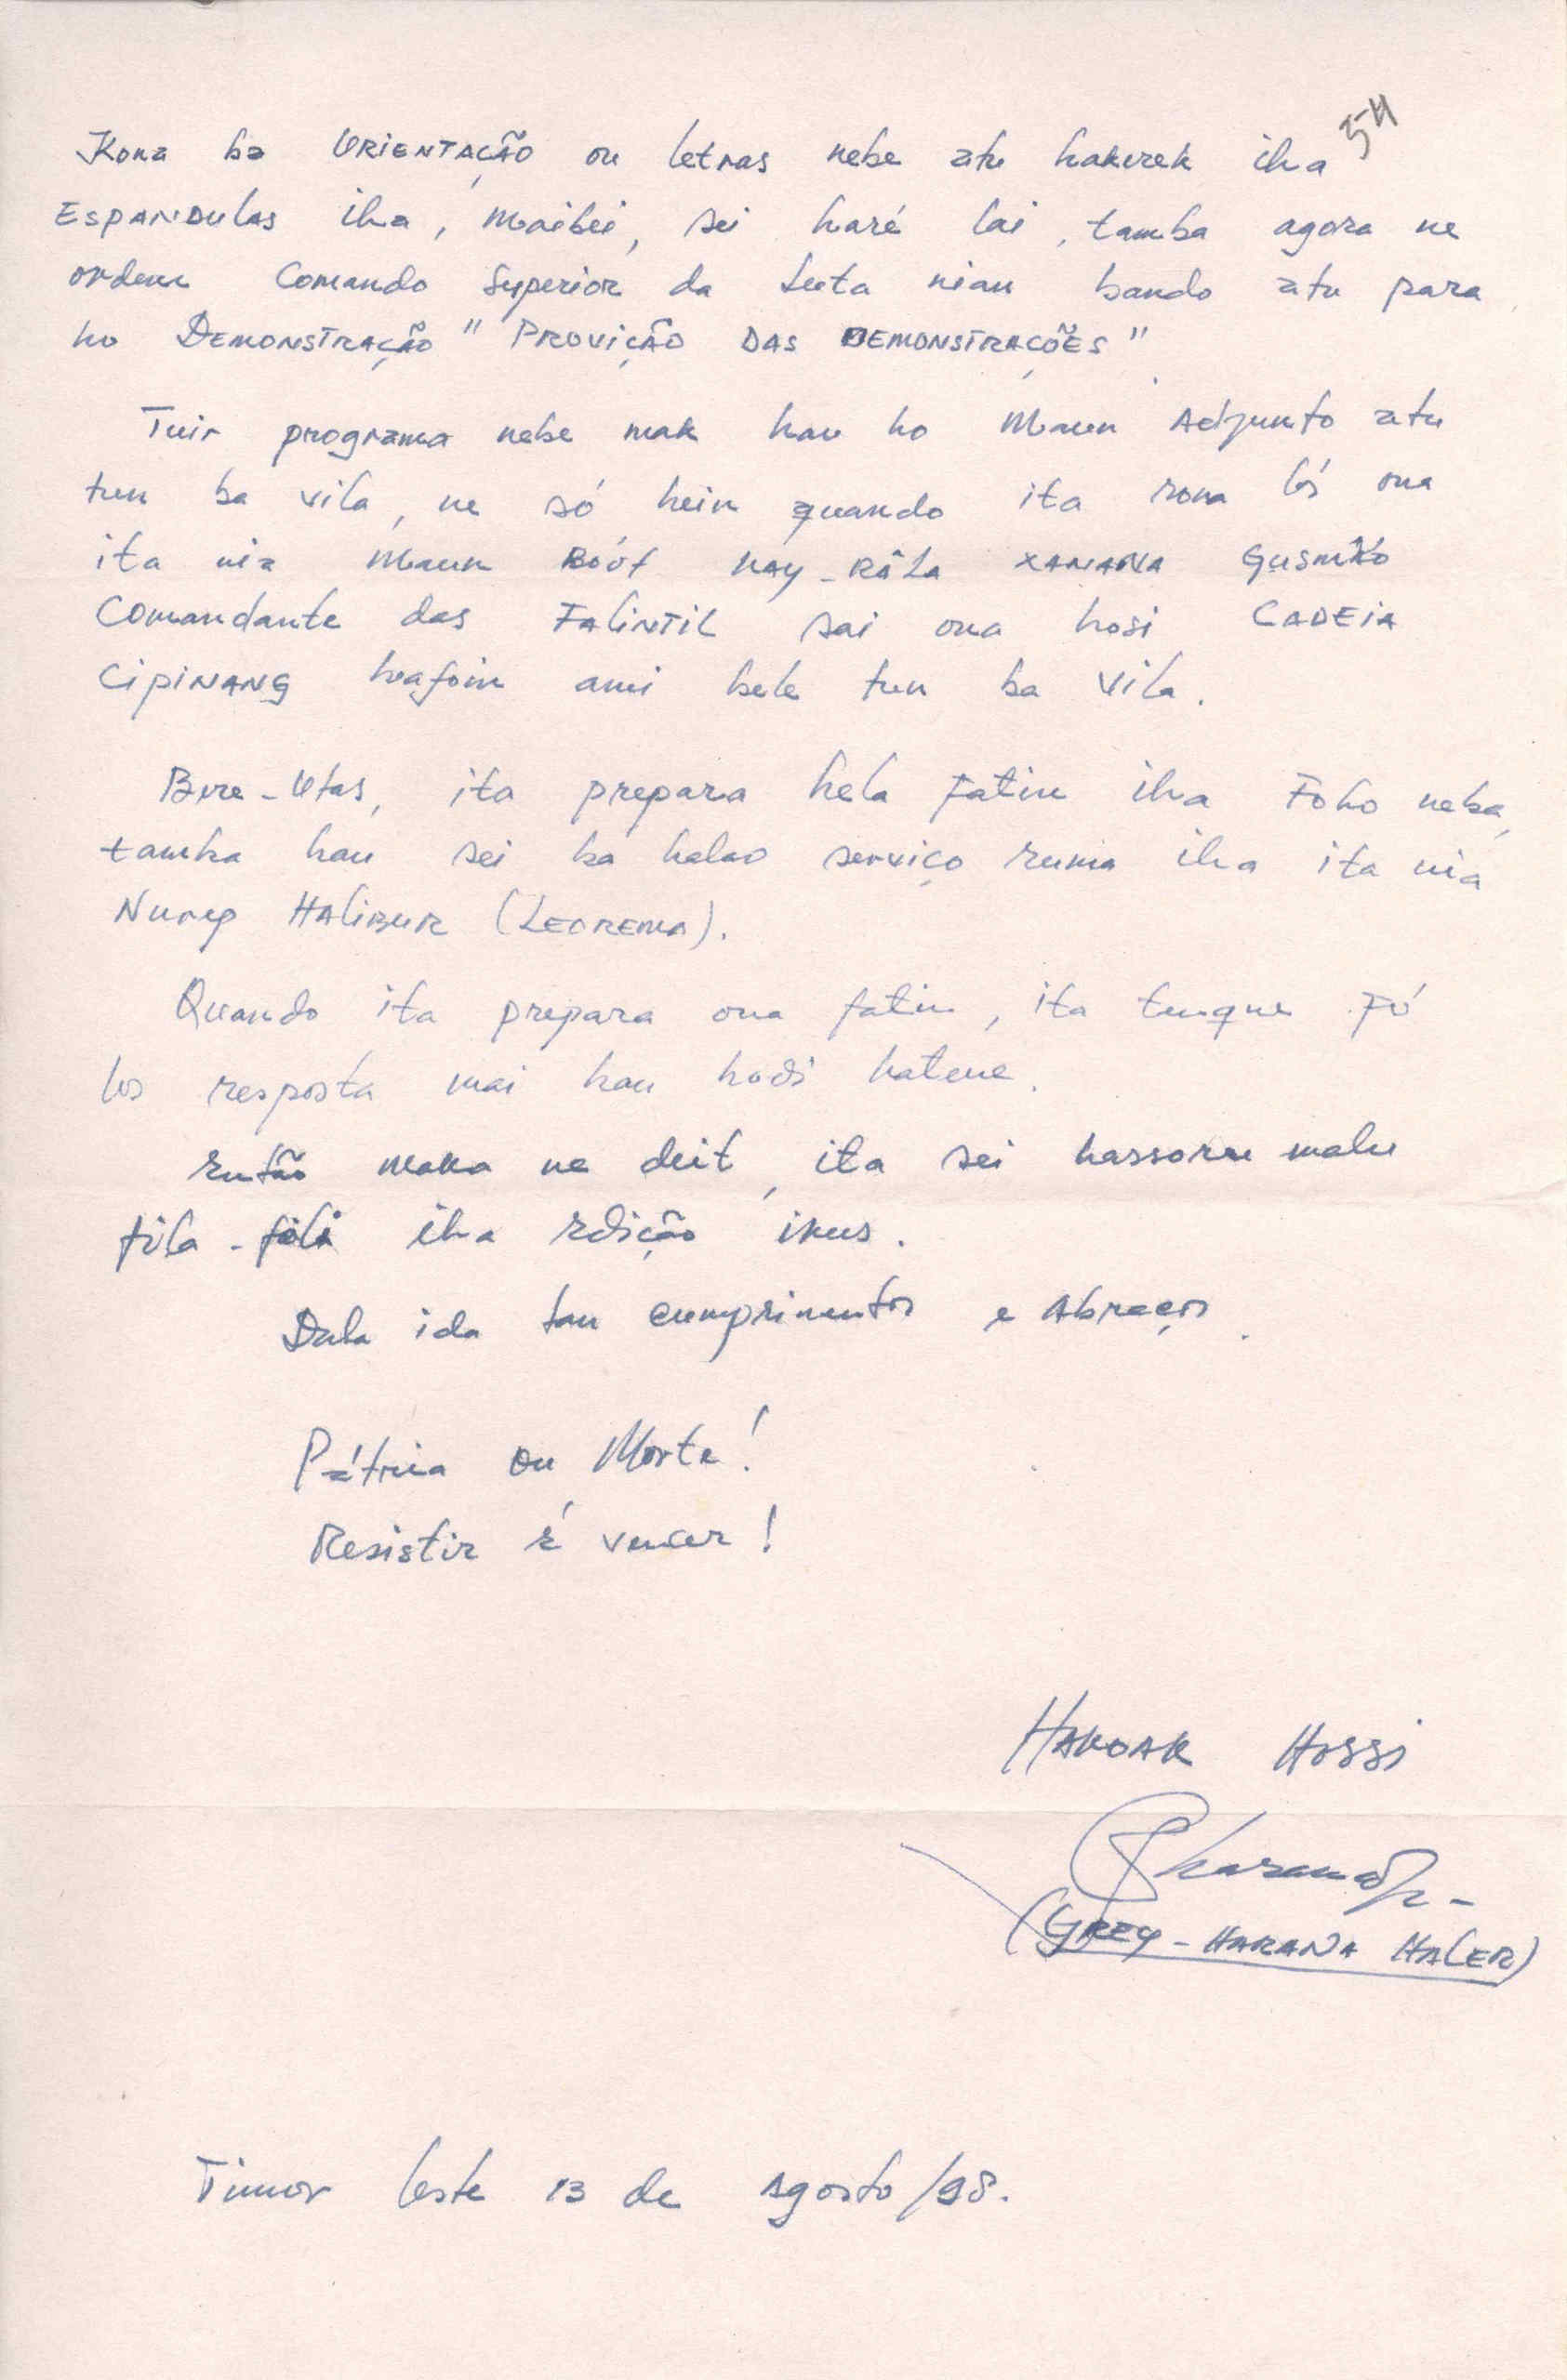 54
Kona ba ORIENTAÇÃO ou letras nebe atu hakerek iha
ESPANDULAS iha, maibei, sei haré lai, tamba agora ne
ordem Comando Superior da Luta nian bando atu para
ho DEMONSTRAÇÃO " PROVIÇÃO DAS DEMONSTRAÇÕES "
Tuir programa nebe mak hau ho Maun Adjunto atu
tun ba vila, ne só hein quando ita rona lós ona
ita nia Maun BÓÓT KAY-RÁLA XANANA GUSMÃO
Comandante das FALINTIL sai ona hosi CADEIA
CIPINANG hafoin ami bele tun ba vila.
Bere-Utas, ita prepara hela Fatin iha Foho neba,
tamba hau sei ba halao serviço ruma iha ita nia
Nurep HALIBUR (LEOREMA).
Quando ita prepara ona fatin, ita tenque Fó
los resposta mai hau hodi hatene.
Então maka ne deit, ita sei hassoru malu
fila-fali iha edição ikus.
Dala ida tan cumprimentos e Abraços.
Pátria ou Morte!
Resistir é vencer!
HAKOAK HOSSI
(GREY-HARANA HALER)
Timor Leste 13 de Agosto/98.